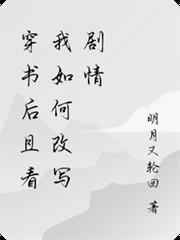 穿书后且看
我如何改写
剧情
明月又轮回 著